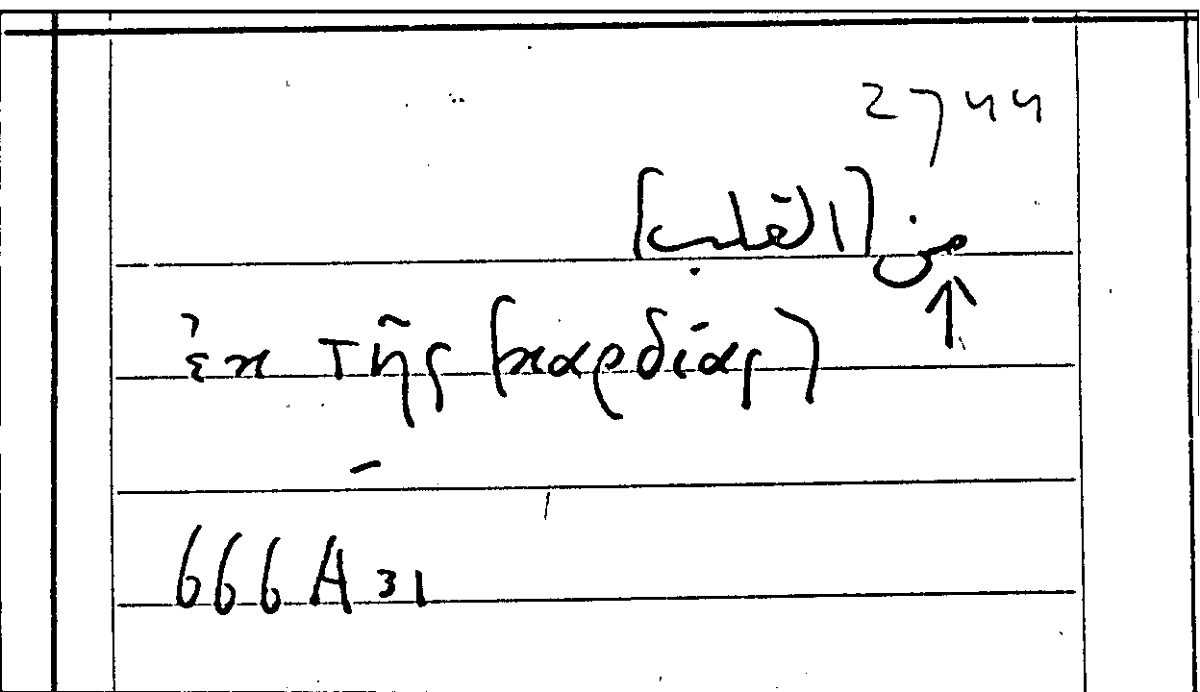 2744
من [القلب]
ἐκ τῆς (καρδίας)
666 A 31